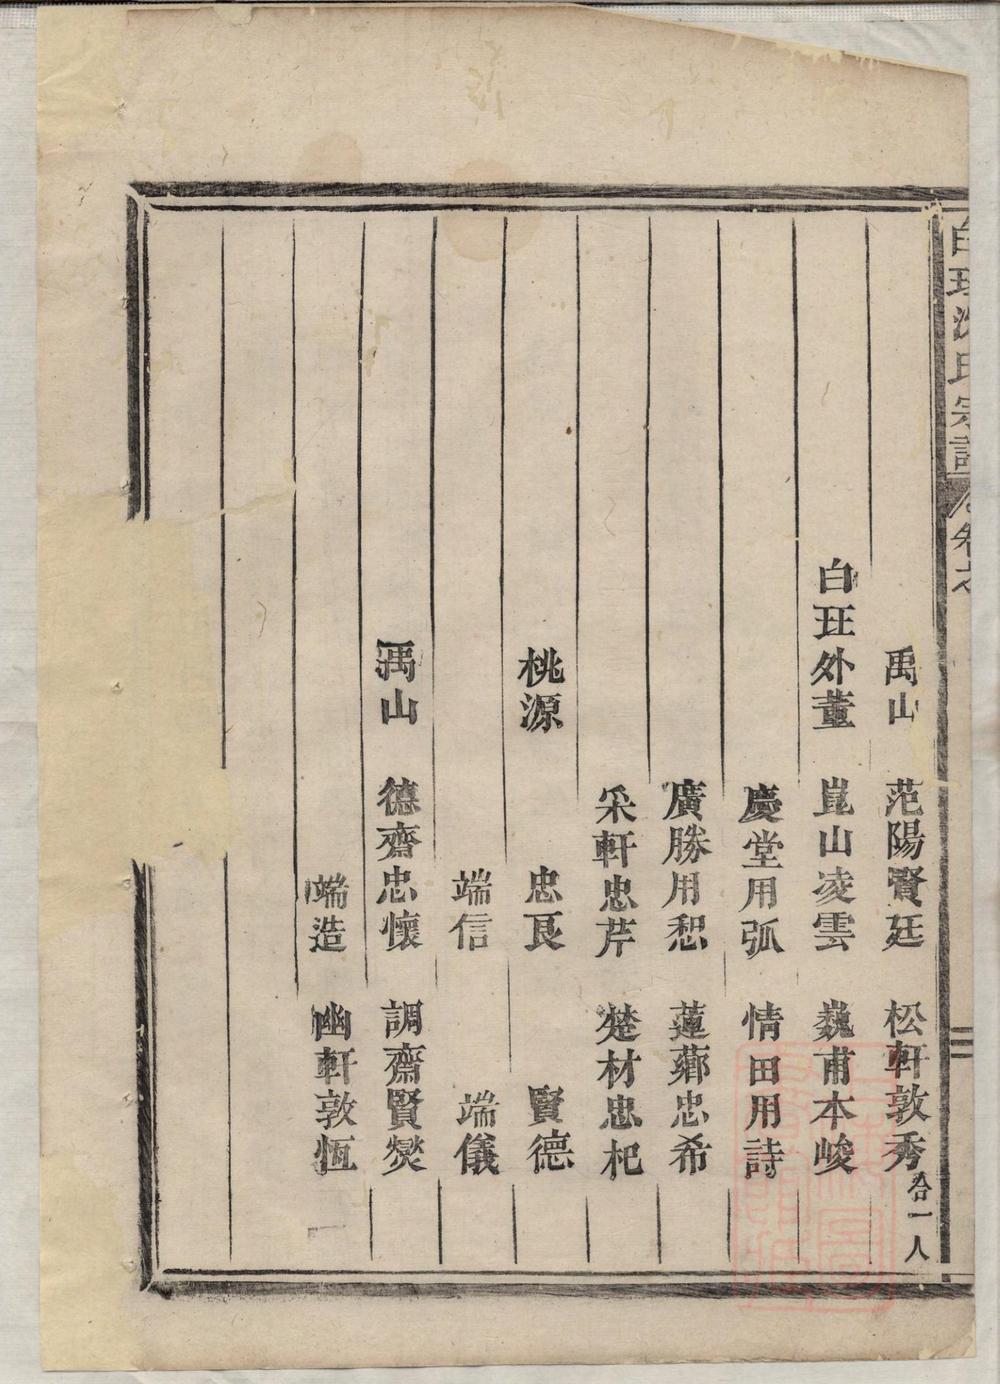 禹山 范陽賢廷 松軒敦秀 合一人
白珏外董 崑山凌雲 巍甫本峻
慶堂用弧 情田用詩
廣勝用恕 蓮薌忠希
采軒忠芹 楚材忠杞
桃源 忠良 賢德
端信 端儀
禹山 德齋忠懷 調齋賢爕
端造 幽軒敦恆